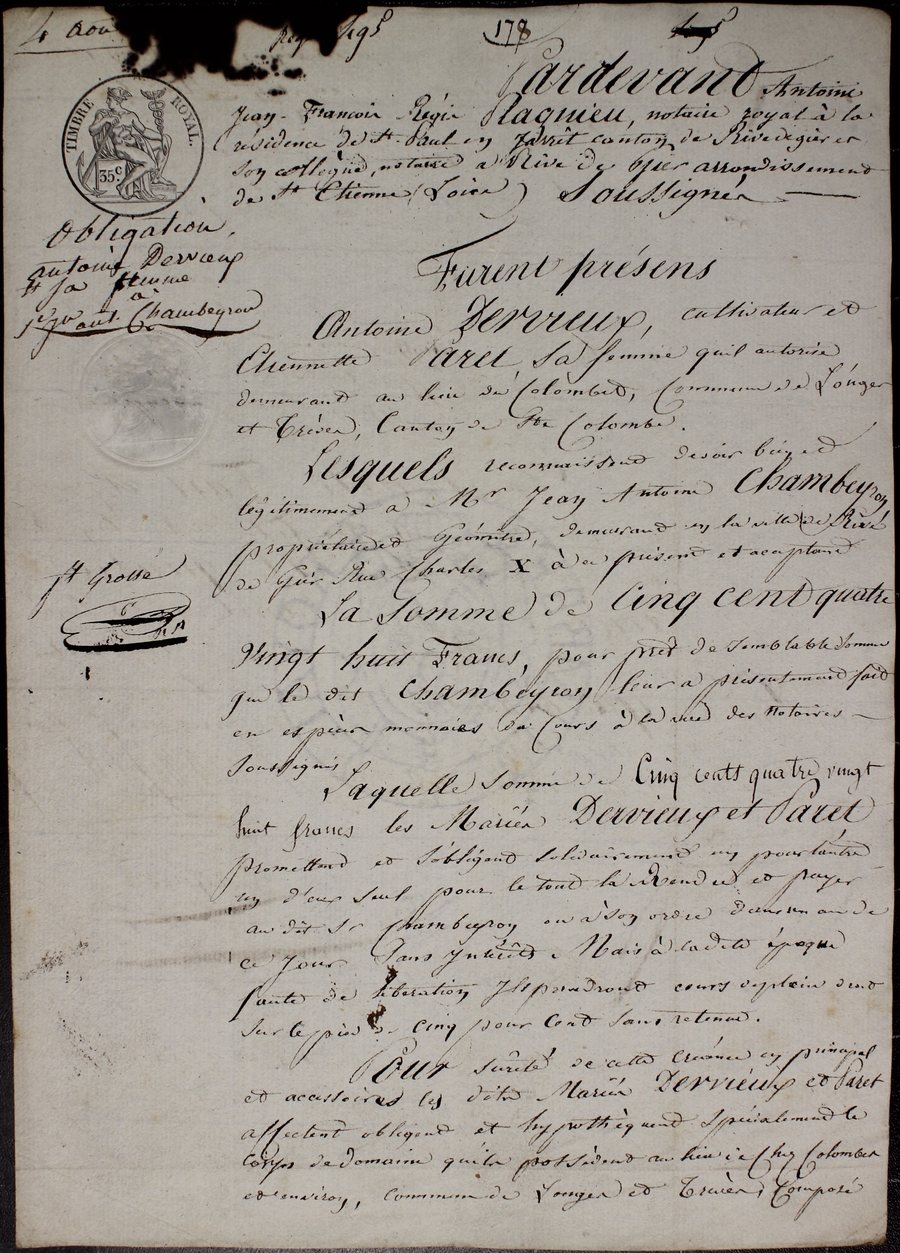 4 aou
178
Pardevant Antoine
Jean-Francois Régis Plagnieu, notaire royal à la
résidence de St. Paul en Jarrêt canton de Rivedegier et
Son collègue, notaire a Rive de Gier arrondissement
de St. Etienne (Loire) Soussignés
TIMBRE ROYAL.
35c
Obligation.
antoine Dervieux
et sa femme
à
jean ant. Chambeyron
Furent présens
Antoine Dervieux, cultivateur et
Etiennette Paret sa femme quil autorise
demeurant au lieu de Colombet, Commune de Longes
et Trèves, Canton de Ste Colombe.
Lesquels reconnaissent devoir bien et
légitimement a Mr Jean Antoine Chambeyron
propriétaire et Géomètre, demeurant en la ville de Rive
de Gier Rue Charles X à ce présent et acceptant
ft Grosse
La Somme de Cinq cent quatre
Vingt huit Francs, pour prêt de semblable somme
que le dit Chambeyron leur a présentement fait
en espèces monnaies de Cours à la vue des Notaires
soussignés
Laquelle somme de Cinq cents quatre vingt
huit francs les Mariés Dervieux et Paret
promettent et s'obligent solidairement un pour l'autre
un d'eux seul pour le tout la rendre et payer
au dit Sr Chambeyron ou à son ordre dans un an de
ce jour Sans Intérêts Mais à ladite époque
faute de libération Ils prendront cours de plein droit
sur le pied de cinq pour Cent sans retenue.
Pour sûreté de cette créance en principal
et accessoires les dits Mariés Dervieux et Paret
affectent obligent et hypothèquent spécialement le
corps de domaine qu'ils possèdent au lieu de Chez Colombet
et environ, commune de Longes et Trèves, Composé